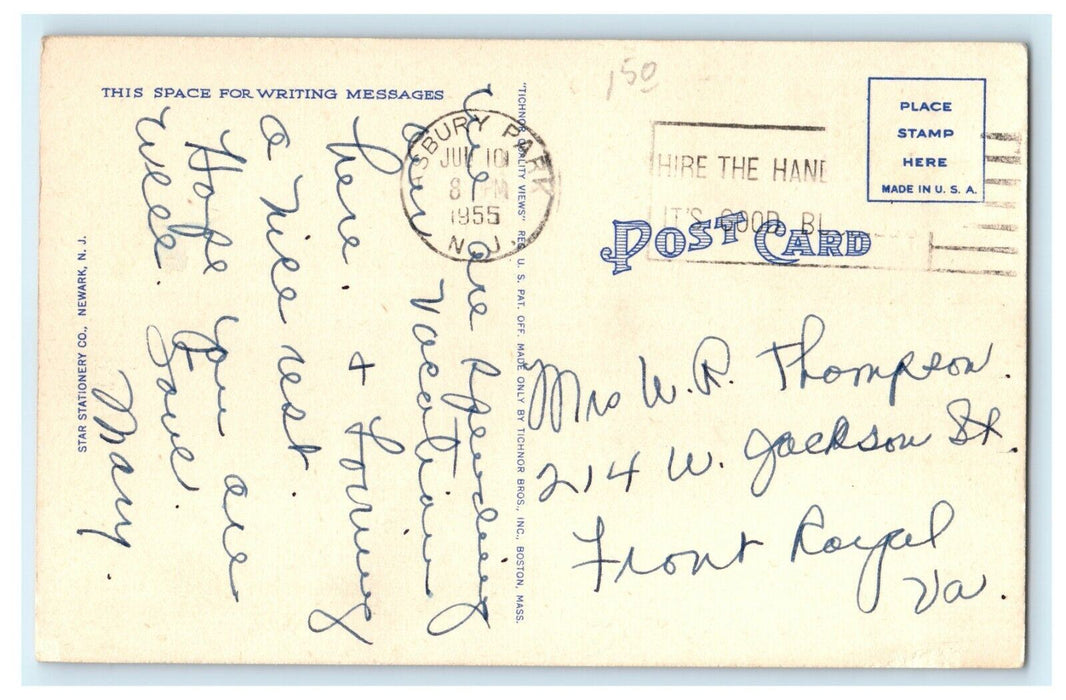 THIS SPACE FOR WRITING MESSAGES
We are spending
our vacation
here. + having
a nice rest.
Hope you are
well. Love.
Mary.
STAR STATIONERY CO., NEWARK, N. J.
"TICHNOR QUALITY VIEWS" REG. U. S. PAT. OFF. MADE ONLY BY TICHNOR BROS., INC., BOSTON, MASS.
150
SBURY PARK
10
8 PM
1955
N. J.
HIRE THE HAND
IT'S GOOD BU
PLACE
STAMP
HERE
MADE IN U. S. A.
POST CARD
Mrs W. R. Thompson.
214 W. Jackson St.
Front Royal
Va.